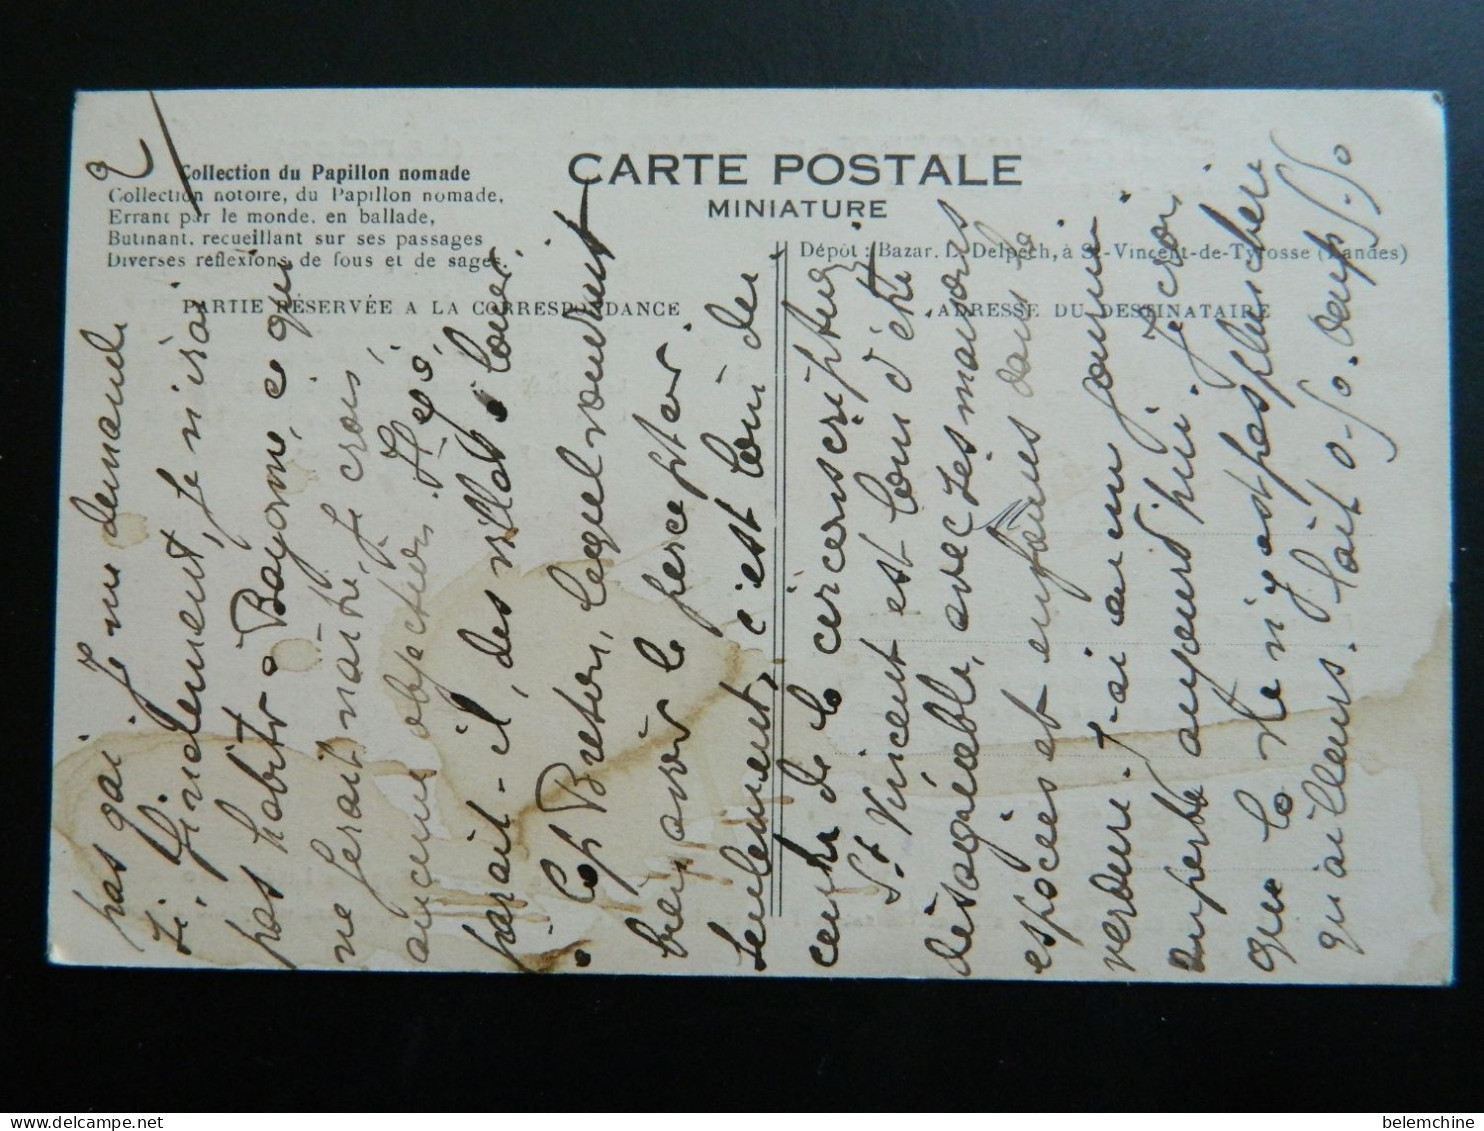 2/
Collection du Papillon nomade
Collection notoire, du Papillon nomade,
Errant par le monde, en ballade,
Butinant, recueillant sur ses passages
Diverses réflexions de fous et de sages.
CARTE POSTALE
MINIATURE
Dépôt : Bazar. L. Delpech, à St-Vincent-de-Tyrosse (Landes)
PARTIE RÉSERVÉE A LA CORRESPONDANCE
ADRESSE DU DESTINATAIRE
pas gai. Je me demande
si, finalement, je n'irai
pas habiter Bayonne, ce qui
ne ferait naître, je crois,
aucune objection. Il y a,
paraît-il, des villas à louer
à Cap Breton, lequel voudrait
bien avoir le percepteur.
Seulement, c'est loin du
centre de la circonscription
St Vincent est loin d'être
désagréable, avec ses maisons
espacées et enfouies dans la
verdure. J'ai eu un journée
superbe aujourd'hui. Je crois
que la vie n'y est pas plus chère
qu'ailleurs. Lait 0.50. Oeufs 5.50